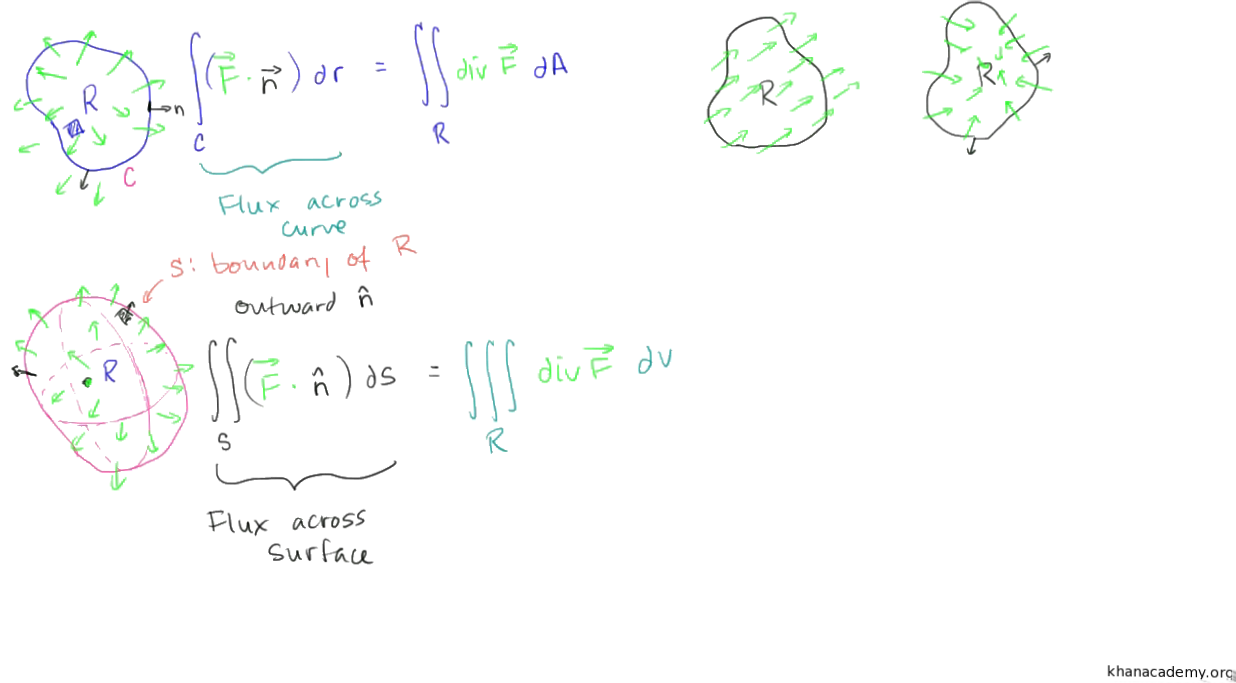 R
n
C
∫_C (F⃗ · n⃗) dr = ∬_R div F⃗ dA
Flux across
curve
R
R
S: boundary of R
outward n̂
R
∬_S (F⃗ · n̂) ds = ∭_R div F⃗ dv
Flux across
surface
khanacademy.org